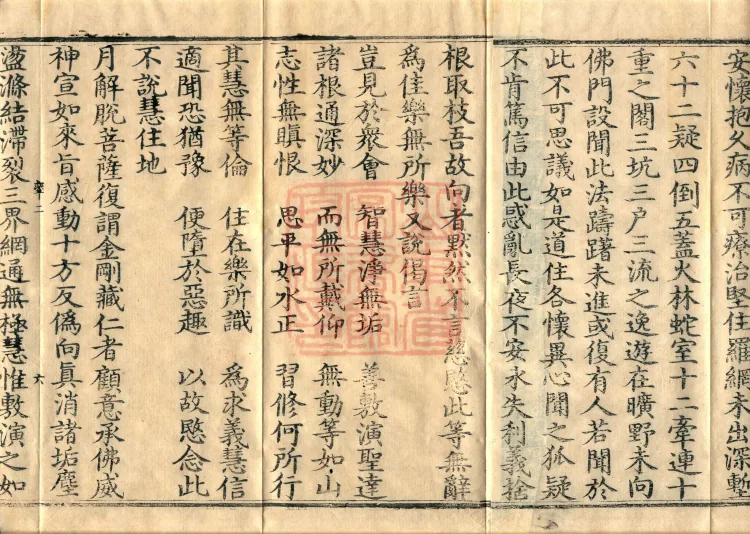 安懷抱久病不可療治堅住羅網未出深塹
六十二疑四倒五蓋火林蛇室十二牽連十
重之閣三坑三户三流之逸遊在曠野未向
佛門設聞此法躊躇未進或復有人若聞於
此不可思議如是道住各懷異心聞之狐疑
不肯篤信由此惑亂長夜不安永失利義捨
根取枝吾故向者默然不言慈愍此等無辭
為佳樂無所樂又說偈言
豈見於衆會 智慧淨無垢 善敷演聖達
諸根通深妙 而無所戴仰 無動等如山
志性無瞋恨 思平如水正 習修何所行
其慧無等倫 住在樂所識 為求義慧信
適聞恐猶豫 便墮於惡趣 以故愍念此
不說慧住地
月解脫菩薩復謂金剛藏仁者顧意承佛威
神宣如來旨感動十方反偽向真消諸垢塵
二 六
盪滌結滯裂三界網通無極慧惟敷演之如